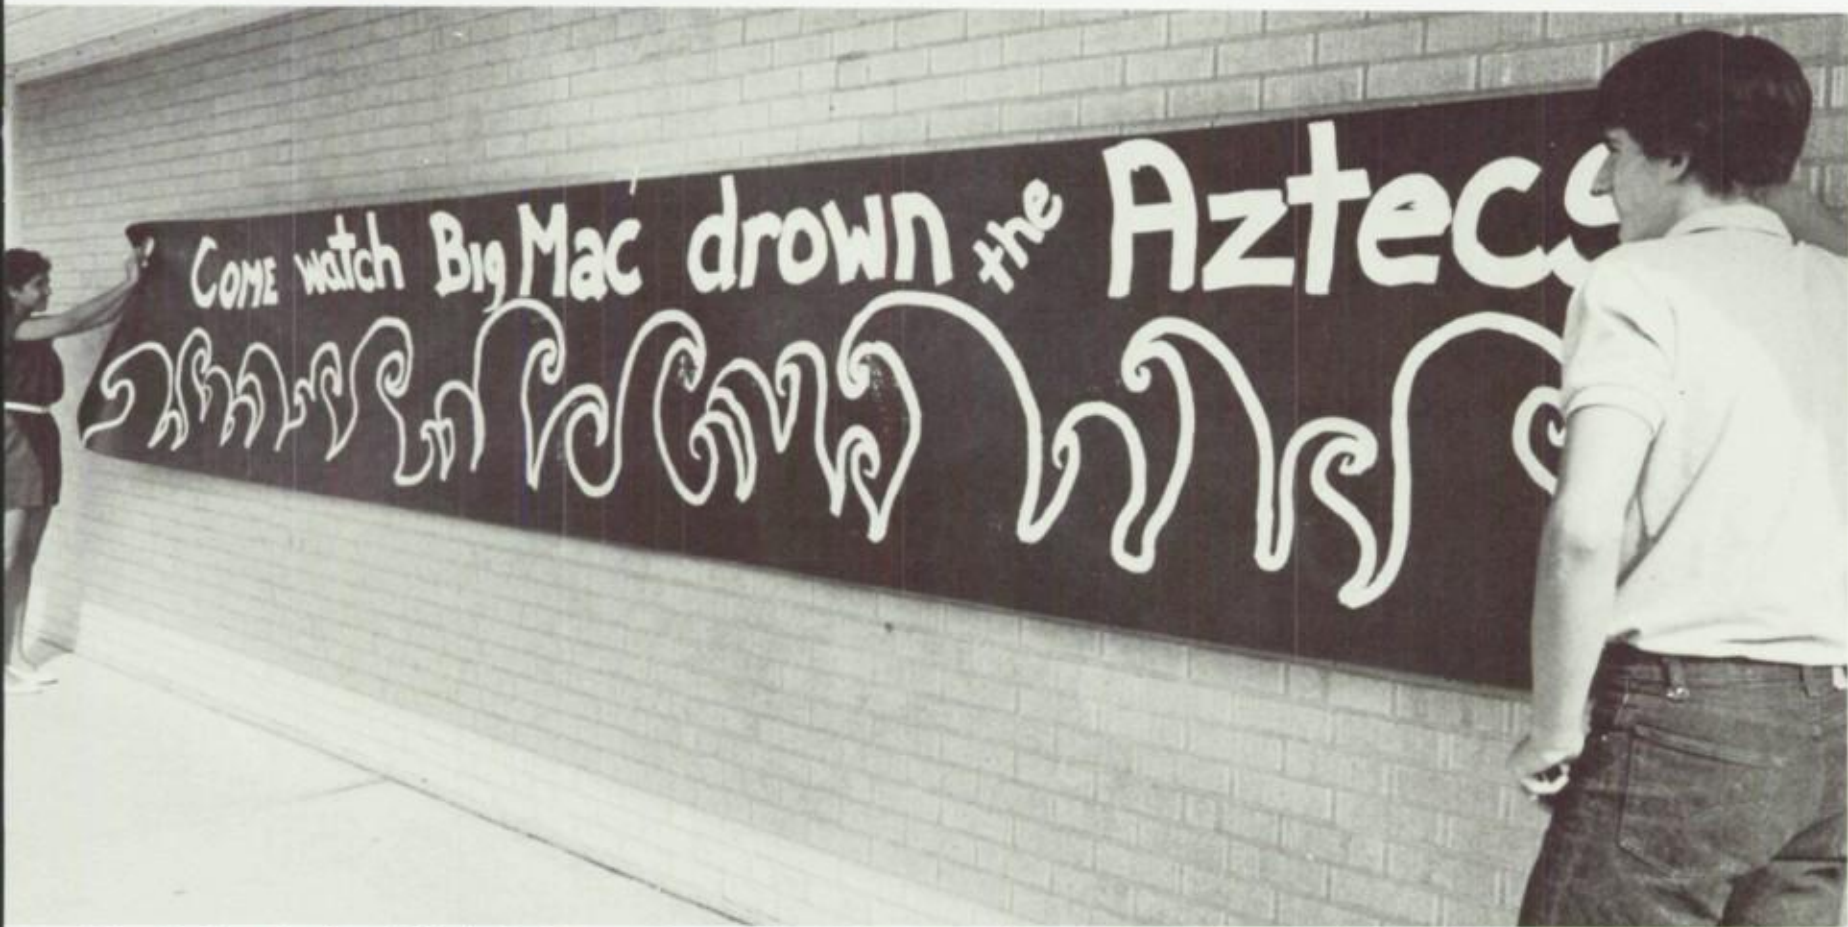 COME watch Big Mac drown the Aztecs